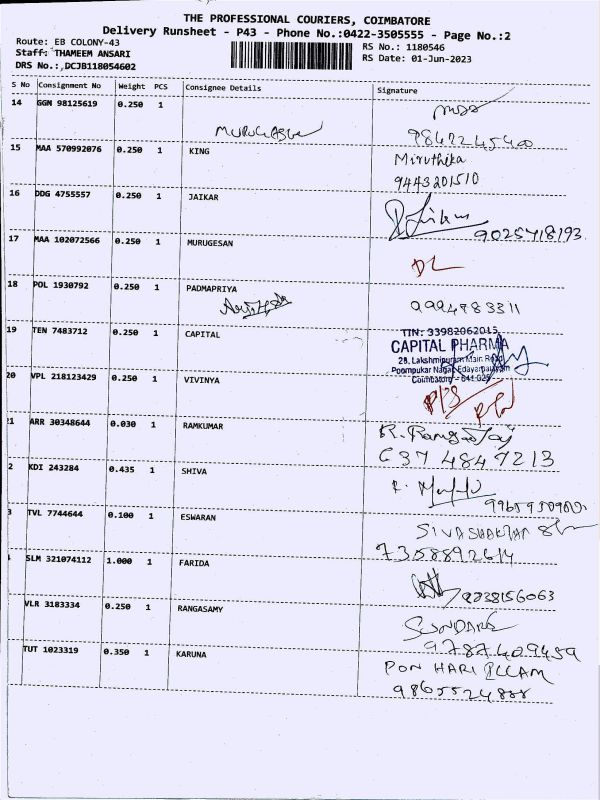 THE PROFESSIONAL COURIERS, COIMBATORE
Delivery Runsheet - P43 - Phone No.:0422-3505555 - Page No.:2
Route: EB COLONY-43
RS No.: 1180546
Staff: THAMEEM ANSARI
RS Date: 01-Jun-2023
DRS No.:,DCJB118054602
S No Consignment No Weight PCS Consignee Details Signature
14 GGN 98125619 0.250 1
MURUGESAN
15 MAA 570992076 0.250 1 KING Miruthika
9443201510
16 DDG 4755557 0.250 1 JAIKAR
9025418193
17 MAA 102072566 0.250 1 MURUGESAN
DL
18 POL 1930792 0.250 1 PADMAPRIYA
9994983311
19 TEN 7483712 0.250 1 CAPITAL
TIN: 33982062015
CAPITAL PHARMA
28, Lakshmipuram Main Road
Poompukar Nagar, Edayarpalayam
Coimbatore - 641 025
20 VPL 218123429 0.250 1 VIVINYA
21 ARR 30348644 0.030 1 RAMKUMAR
637 484 7213
2 KDI 243284 0.435 1 SHIVA
3 TVL 7744644 0.100 1 ESWARAN
7358892614
SLM 321074112 1.000 1 FARIDA
9238156063
VLR 3183334 0.250 1 RANGASAMY
9787409459
TUT 1023319 0.350 1 KARUNA
PON HARI ILLAM